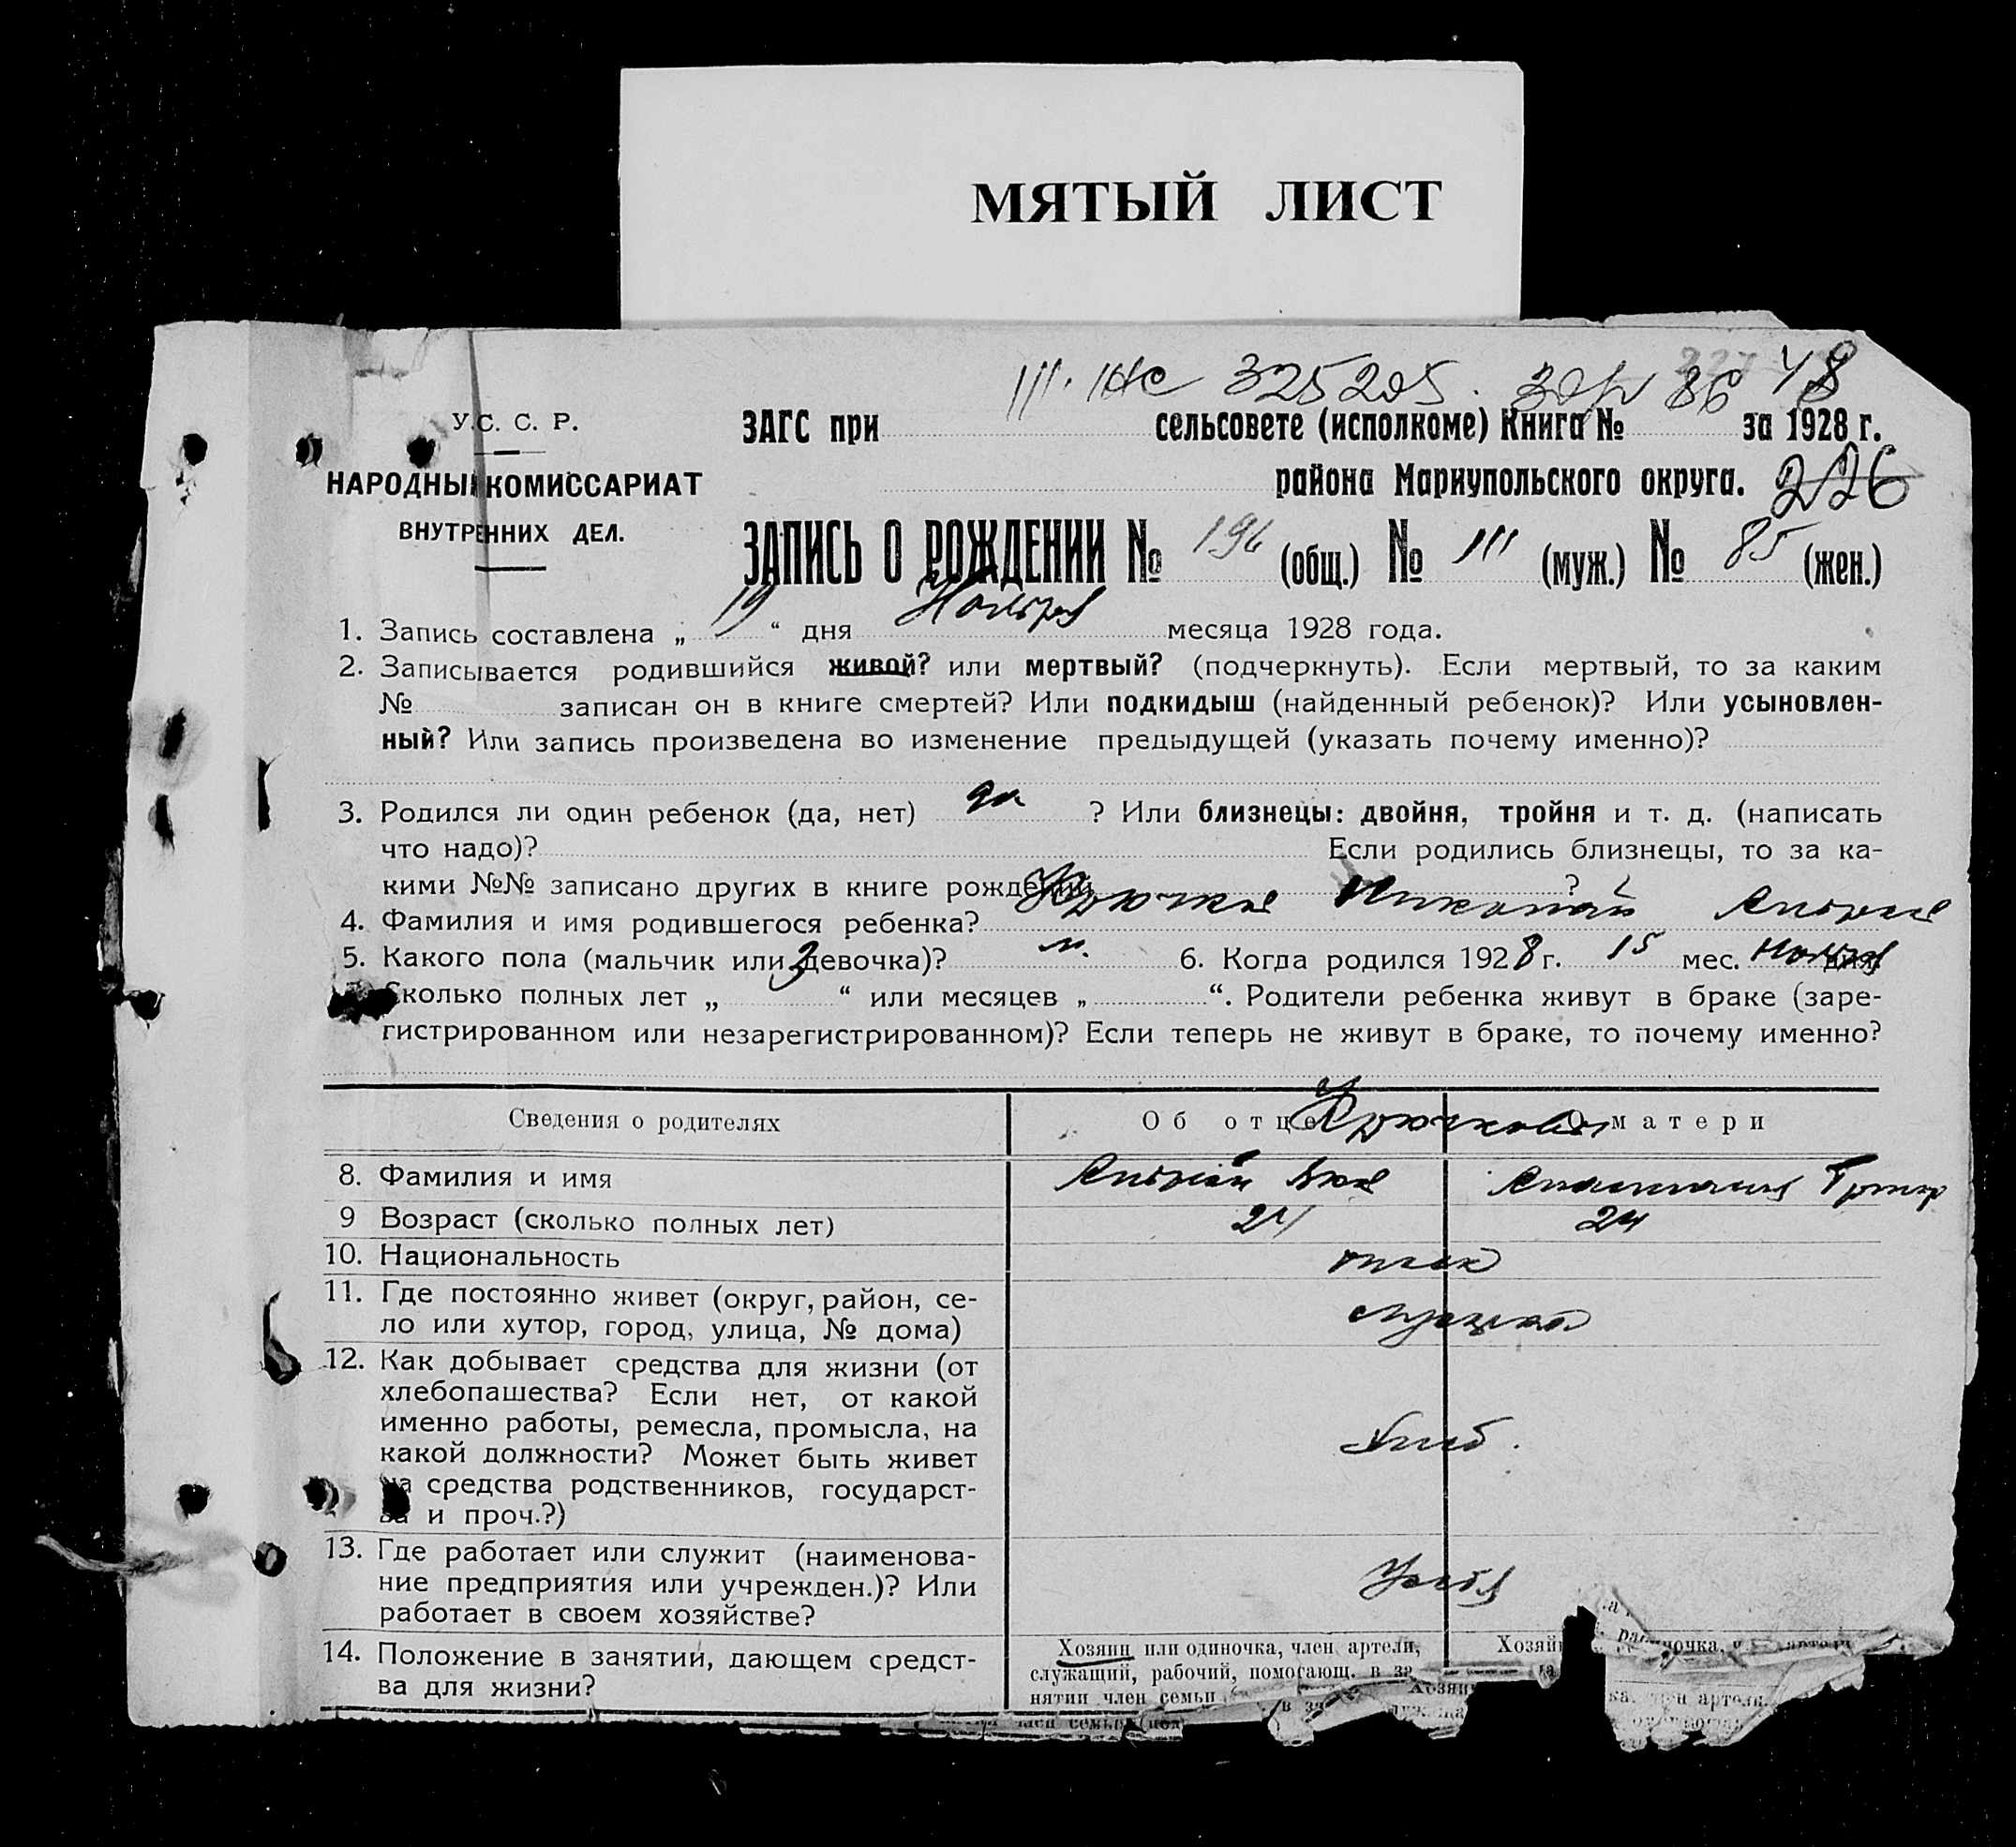 МЯТЫЙ ЛИСТ
325205. 86 48
У.С.С.Р.
ЗАГС при сельсовете (исполкоме) Книга № за 1928 г.
НАРОДНЫЙ КОМИССАРИАТ
района Мариупольского округа. 226
ВНУТРЕННИХ ДЕЛ.
ЗАПИСЬ О РОЖДЕНИИ № 196 (общ.) № 111 (муж.) № 85 (жен.)
1. Запись составлена „ 19 “ дня Ноября месяца 1928 года.
2. Записывается родившийся живой? или мертвый? (подчеркнуть). Если мертвый, то за каким
№ записан он в книге смертей? Или подкидыш (найденный ребенок)? Или усыновлен-
ный? Или запись произведена во изменение предыдущей (указать почему именно)?
3. Родился ли один ребенок (да, нет) да ? Или близнецы: двойня, тройня и т. д. (написать
что надо)? Если родились близнецы, то за ка-
кими №№ записано других в книге рождений ?
4. Фамилия и имя родившегося ребенка? Крючков Николай Андрее
5. Какого пола (мальчик или девочка)? м. 6. Когда родился 1928 г. 15 мес. Ноября дня
Сколько полных лет „ 3 “ или месяцев „ “. Родители ребенка живут в браке (заре-
гистрированном или незарегистрированном)? Если теперь не живут в браке, то почему именно?
Сведения о родителях
Об отце О матери
Крючковы
8. Фамилия и имя Андрей Анастасия
9 Возраст (сколько полных лет) 24 24
10. Национальность
11. Где постоянно живет (округ, район, се-
ло или хутор, город, улица, № дома)
12. Как добывает средства для жизни (от
хлебопашества? Если нет, от какой
именно работы, ремесла, промысла, на
какой должности? Может быть живет
на средства родственников, государст-
ва и проч.?)
Хлеб.
13. Где работает или служит (наименова-
ние предприятия или учрежден.)? Или
работает в своем хозяйстве?
14. Положение в занятии, дающем средст-
ва для жизни?
Хозяин или одиночка, член артели,
служащий, рабочий, помогающ. в за
нятии член семьи